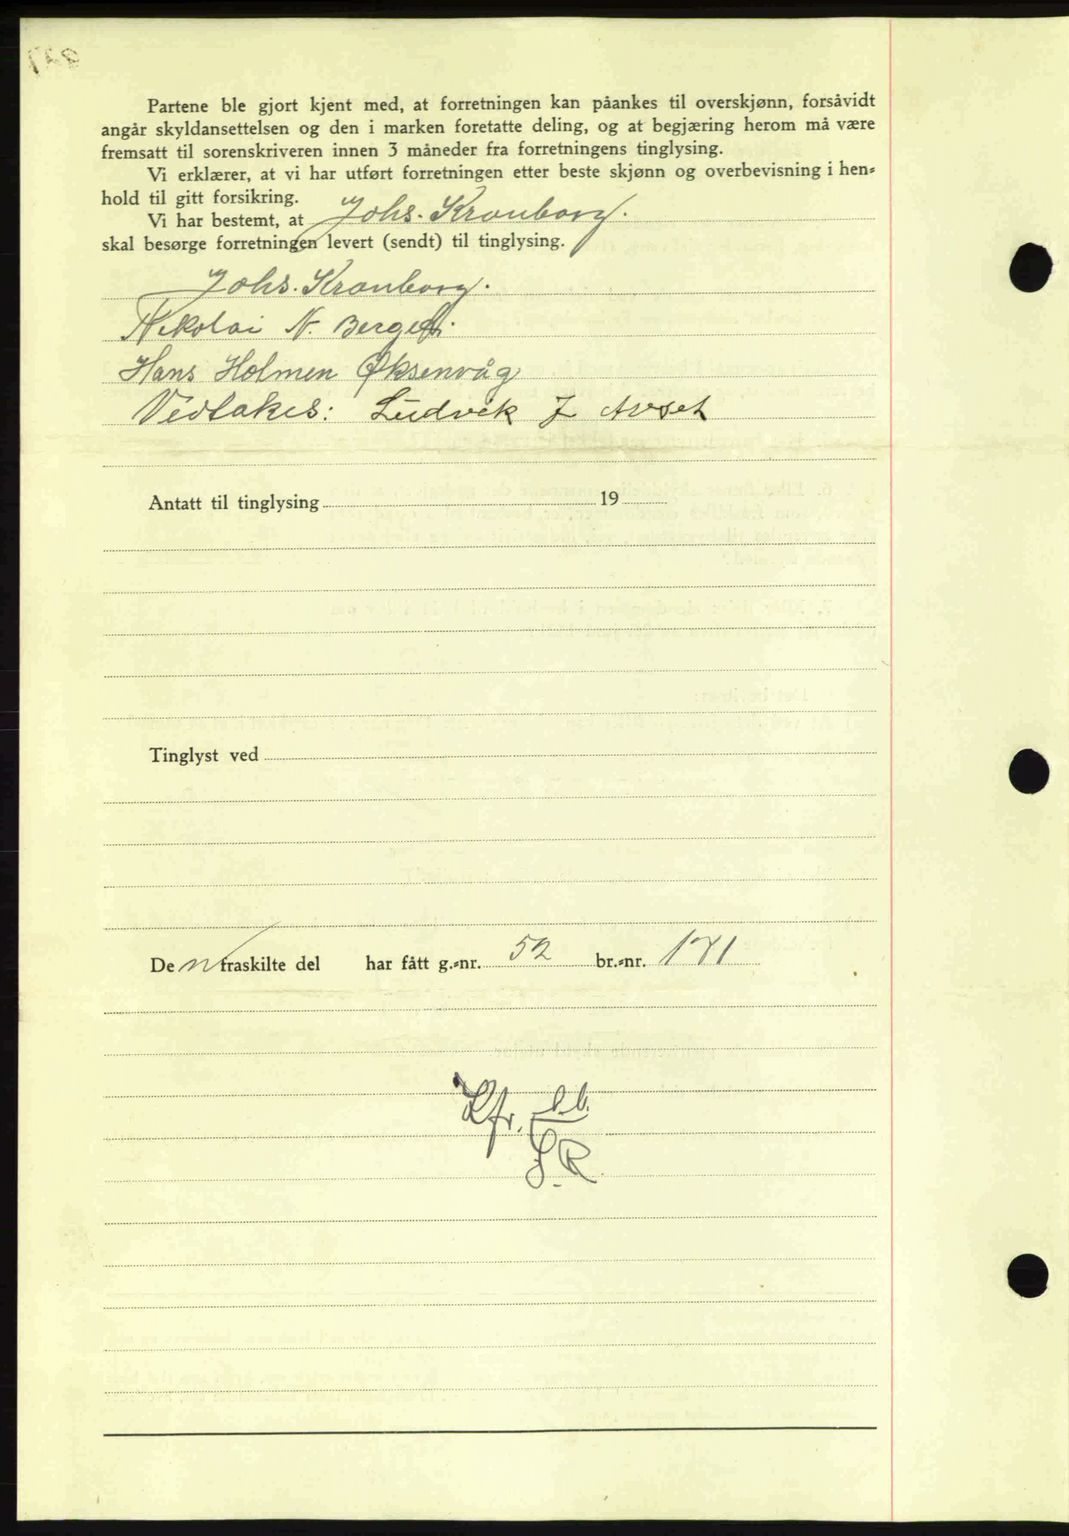 Partene ble gjort kjent med, at forretningen kan påankes til overskjønn, forsåvidt
angår skyldansettelsen og den i marken foretatte deling, og at begjæring herom må være
fremsatt til sorenskriveren innen 3 måneder fra forretningens tinglysing.
Vi erklærer, at vi har utført forretningen etter beste skjønn og overbevisning i hen-
hold til gitt forsikring.
Vi har bestemt, at Johs. Kronborg.
skal besørge forretningen levert (sendt) til tinglysing.
Johs. Kronborg.
Nikolai N. Berget.
Hans Holmen Øksenvåg
Vedtakes: Ludvik J Avset
Antatt til tinglysing 19
Tinglyst ved
De n fraskilte del har fått g.-nr. 52 br.-nr. 171
Kfr.